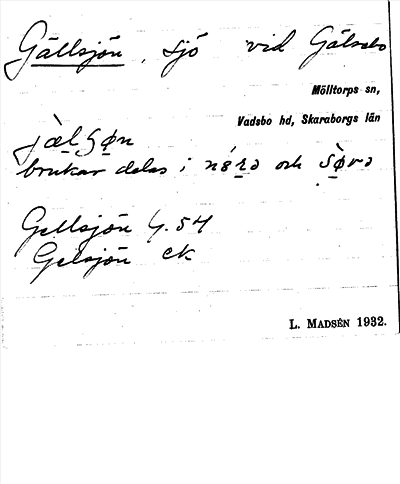 Gällsjön, sjö vid Gälsebo
Mölltorps sn,
Vadsbo hd, Skaraborgs län
jæ̀lʂøn
brukar delas i nó̵rə och sø̀rə
Gellsjön G. 54
Gelsjön ek
L. MADSÉN 1932.